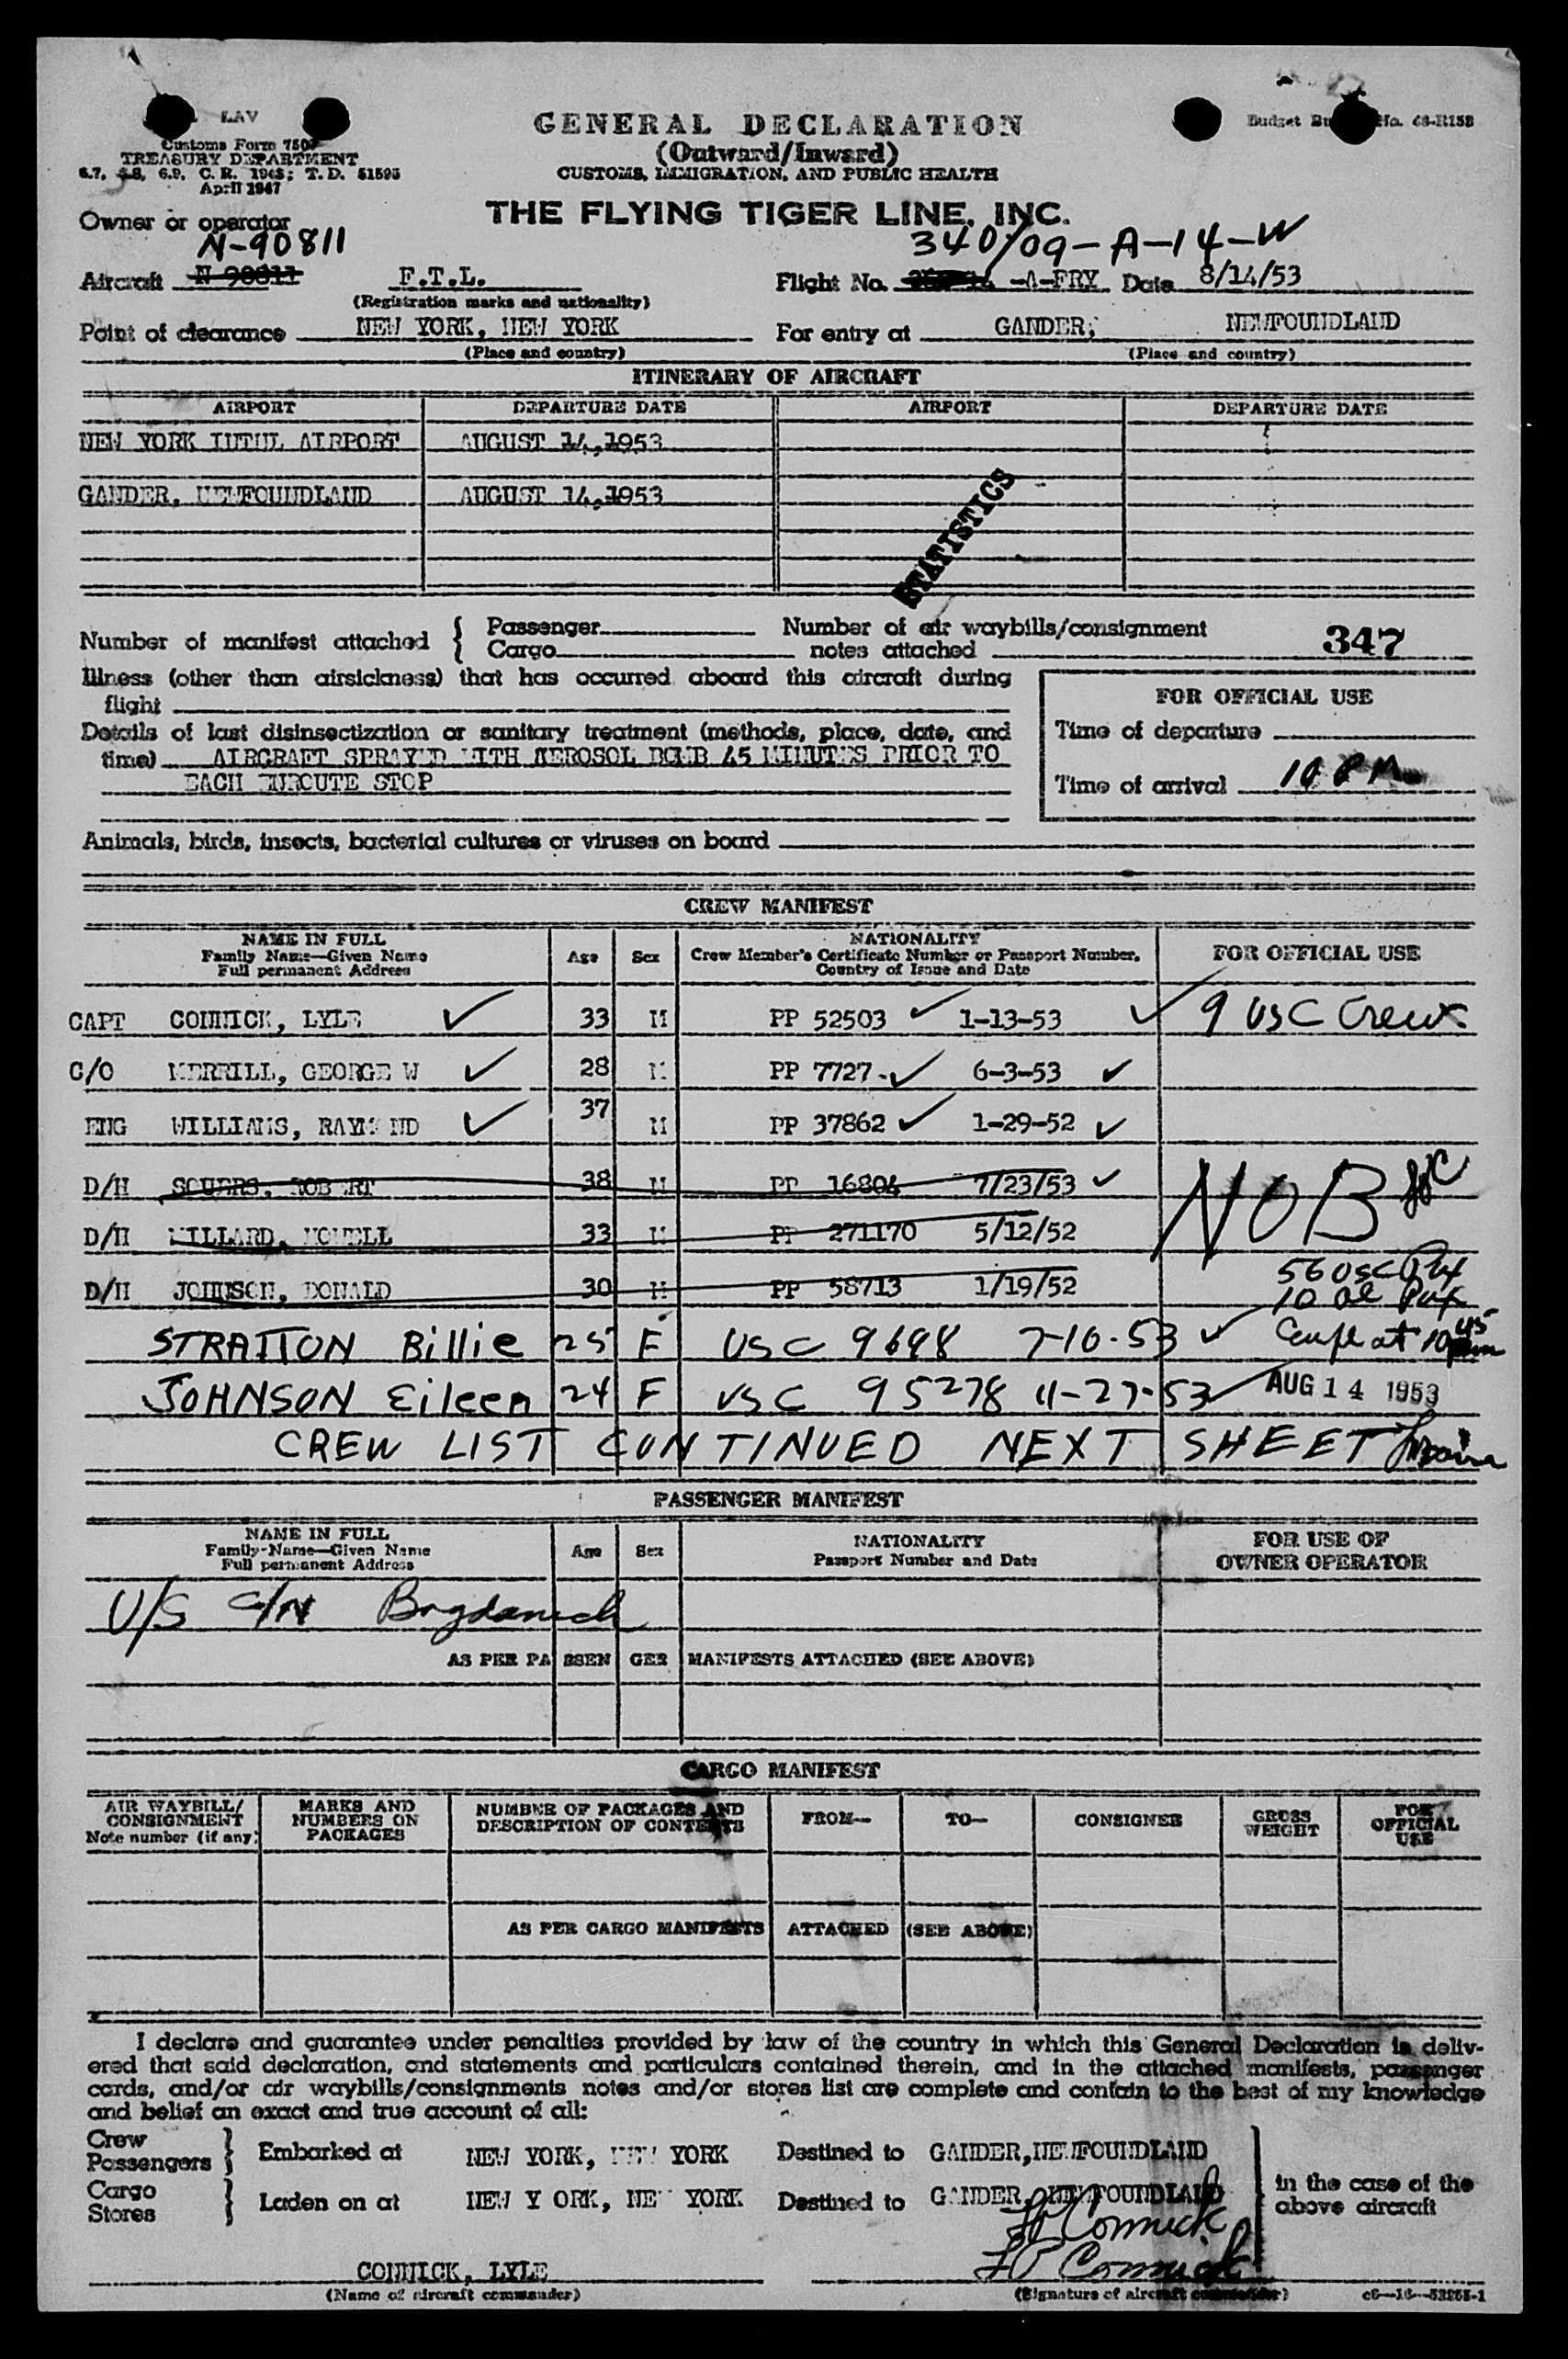 LAV
Customs Form 7507
TREASURY DEPARTMENT
6.7, 6.8, 6.9, C. R. 1943; T. D. 51595
April 1947
Budget No. 48-R158
GENERAL DECLARATION
(Outward/Inward)
CUSTOMS, IMMIGRATION, AND PUBLIC HEALTH
THE FLYING TIGER LINE, INC.
Owner or operator
N-90811
340/09-A-14-W
Aircraft N 90811 F.T.L. Flight No. -A-FRY Date 8/14/53
(Registration marks and nationality)
Point of clearance NEW YORK, NEW YORK For entry at GANDER, NEWFOUNDLAND
(Place and country) (Place and country)
ITINERARY OF AIRCRAFT
AIRPORT DEPARTURE DATE AIRPORT DEPARTURE DATE
NEW YORK INTNL AIRPORT AUGUST 14,1953
GANDER, NEWFOUNDLAND AUGUST 14,1953
STATISTICS
Number of manifest attached { Passenger Number of air waybills/consignment
Cargo notes attached 347
Illness (other than airsickness) that has occurred aboard this aircraft during
flight
Details of last disinsectization or sanitary treatment (methods, place, date, and
time) AIRCRAFT SPRAYED WITH AEROSOL BOMB 45 MINUTES PRIOR TO
EACH ENROUTE STOP
FOR OFFICIAL USE
Time of departure
Time of arrival 10 PM
Animals, birds, insects, bacterial cultures or viruses on board
CREW MANIFEST
NAME IN FULL
Family Name—Given Name
Full permanent Address
Age Sex
NATIONALITY
Crew Member's Certificate Number or Passport Number,
Country of Issue and Date
FOR OFFICIAL USE
CAPT CONNICK, LYLE ✓ 33 M PP 52503 ✓ 1-13-53 ✓ 9 USC Crew
C/O MERRILL, GEORGE W ✓ 28 M PP 7727 ✓ 6-3-53 ✓
ENG WILLIAMS, RAYMOND ✓ 37 M PP 37862 ✓ 1-29-52 ✓
D/H SOUERS, ROBERT 38 M PP 16804 7/23/53 ✓ NOB
D/H WILLARD, 33 M PP 271170 5/12/52
D/H JOHNSON, DONALD 30 M PP 58713 1/19/52
56 USC Pax
10 al Pax
STRATTON Billie 25 F USC 9698 7-10-53 ✓
JOHNSON Eileen 24 F USC 95278 11-27-53 ✓ AUG 14 1953
CREW LIST CONTINUED NEXT SHEET
PASSENGER MANIFEST
NAME IN FULL
Family-Name—Given Name
Full permanent Address
Age Sex
NATIONALITY
Passport Number and Date
FOR USE OF
OWNER OPERATOR
U/S C/N Bogdanich
AS PER PASSENGER MANIFESTS ATTACHED (SEE ABOVE)
CARGO MANIFEST
AIR WAYBILL/
CONSIGNMENT
Note number (if any)
MARKS AND
NUMBERS ON
PACKAGES
NUMBER OF PACKAGES AND
DESCRIPTION OF CONTENTS
FROM— TO— CONSIGNEE
GROSS
WEIGHT
FOR
OFFICIAL
USE
AS PER CARGO MANIFESTS ATTACHED (SEE ABOVE)
I declare and guarantee under penalties provided by law of the country in which this General Declaration is deliv-
ered that said declaration, and statements and particulars contained therein, and in the attached manifests, passenger
cards, and/or air waybills/consignments notes and/or stores list are complete and contain to the best of my knowledge
and belief an exact and true account of all:
Crew
Passengers } Embarked at NEW YORK, NEW YORK Destined to GANDER, NEWFOUNDLAND
Cargo
Stores } Laden on at NEW Y ORK, NEW YORK Destined to GANDER, NEWFOUNDLAND
in the case of the
above aircraft
L P Connick
L P Connick
CONNICK, LYLE
(Name of aircraft commander) (Signature of aircraft commander) c6—16—53255-1